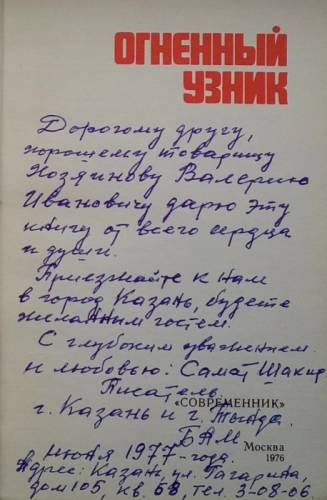 ОГНЕННЫЙ
УЗНИК
Дорогому другу,
хорошему товарищу
Хозяинову Валерию
Ивановичу дарю эту
книгу от всего сердца
и души.
Приезжайте к нам
в город Казань, будете
желанным гостем.
С глубоким уважением
и любовью: Самат Шакир
Писатель.
«СОВРЕМЕННИК»
г. Казань и г. Тында.
БАМ
Москва
1976
июня 1977-года.
Адрес: Казань, ул. Гагарина,
дом 105, кв. 58, тел. 3-08-06